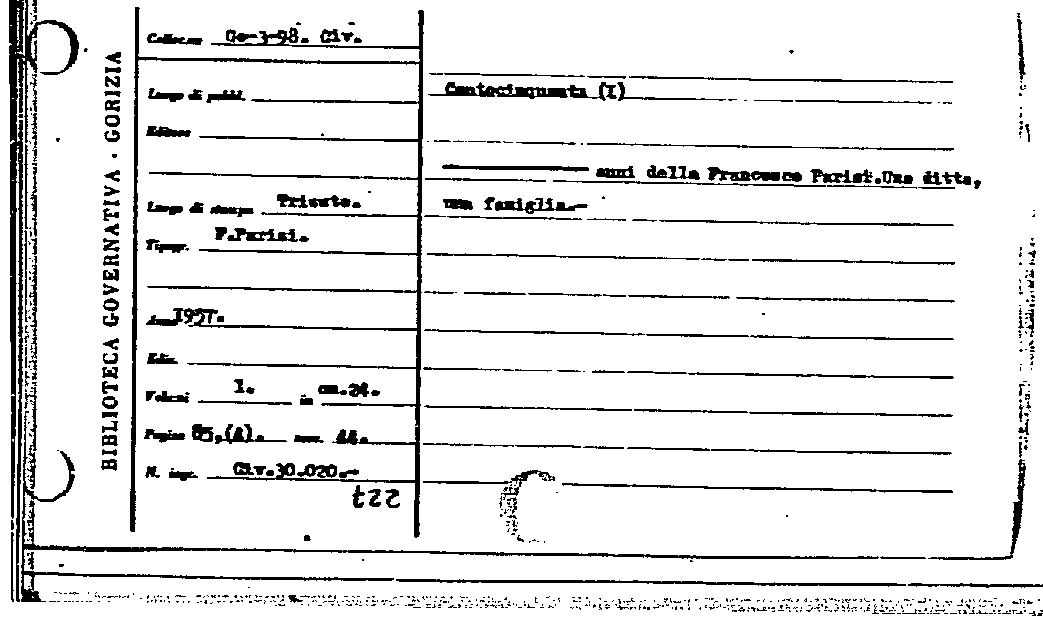 BIBLIOTECA GOVERNATIVA · GORIZIA
Collocaz Go-3-98. Civ.
Luogo di pubbl.
Editore
Luogo di stampa Trieste.
Tipogr. F.Parisi.
Anno 1957.
Ediz.
Volumi 1. in cm.24.
Pagine 85,(4). tav. 44.
N. ingr. Civ.30.020.-
Centocinquanta (I)
anni della Francesco Parisi.Una ditta,
una famiglia.-